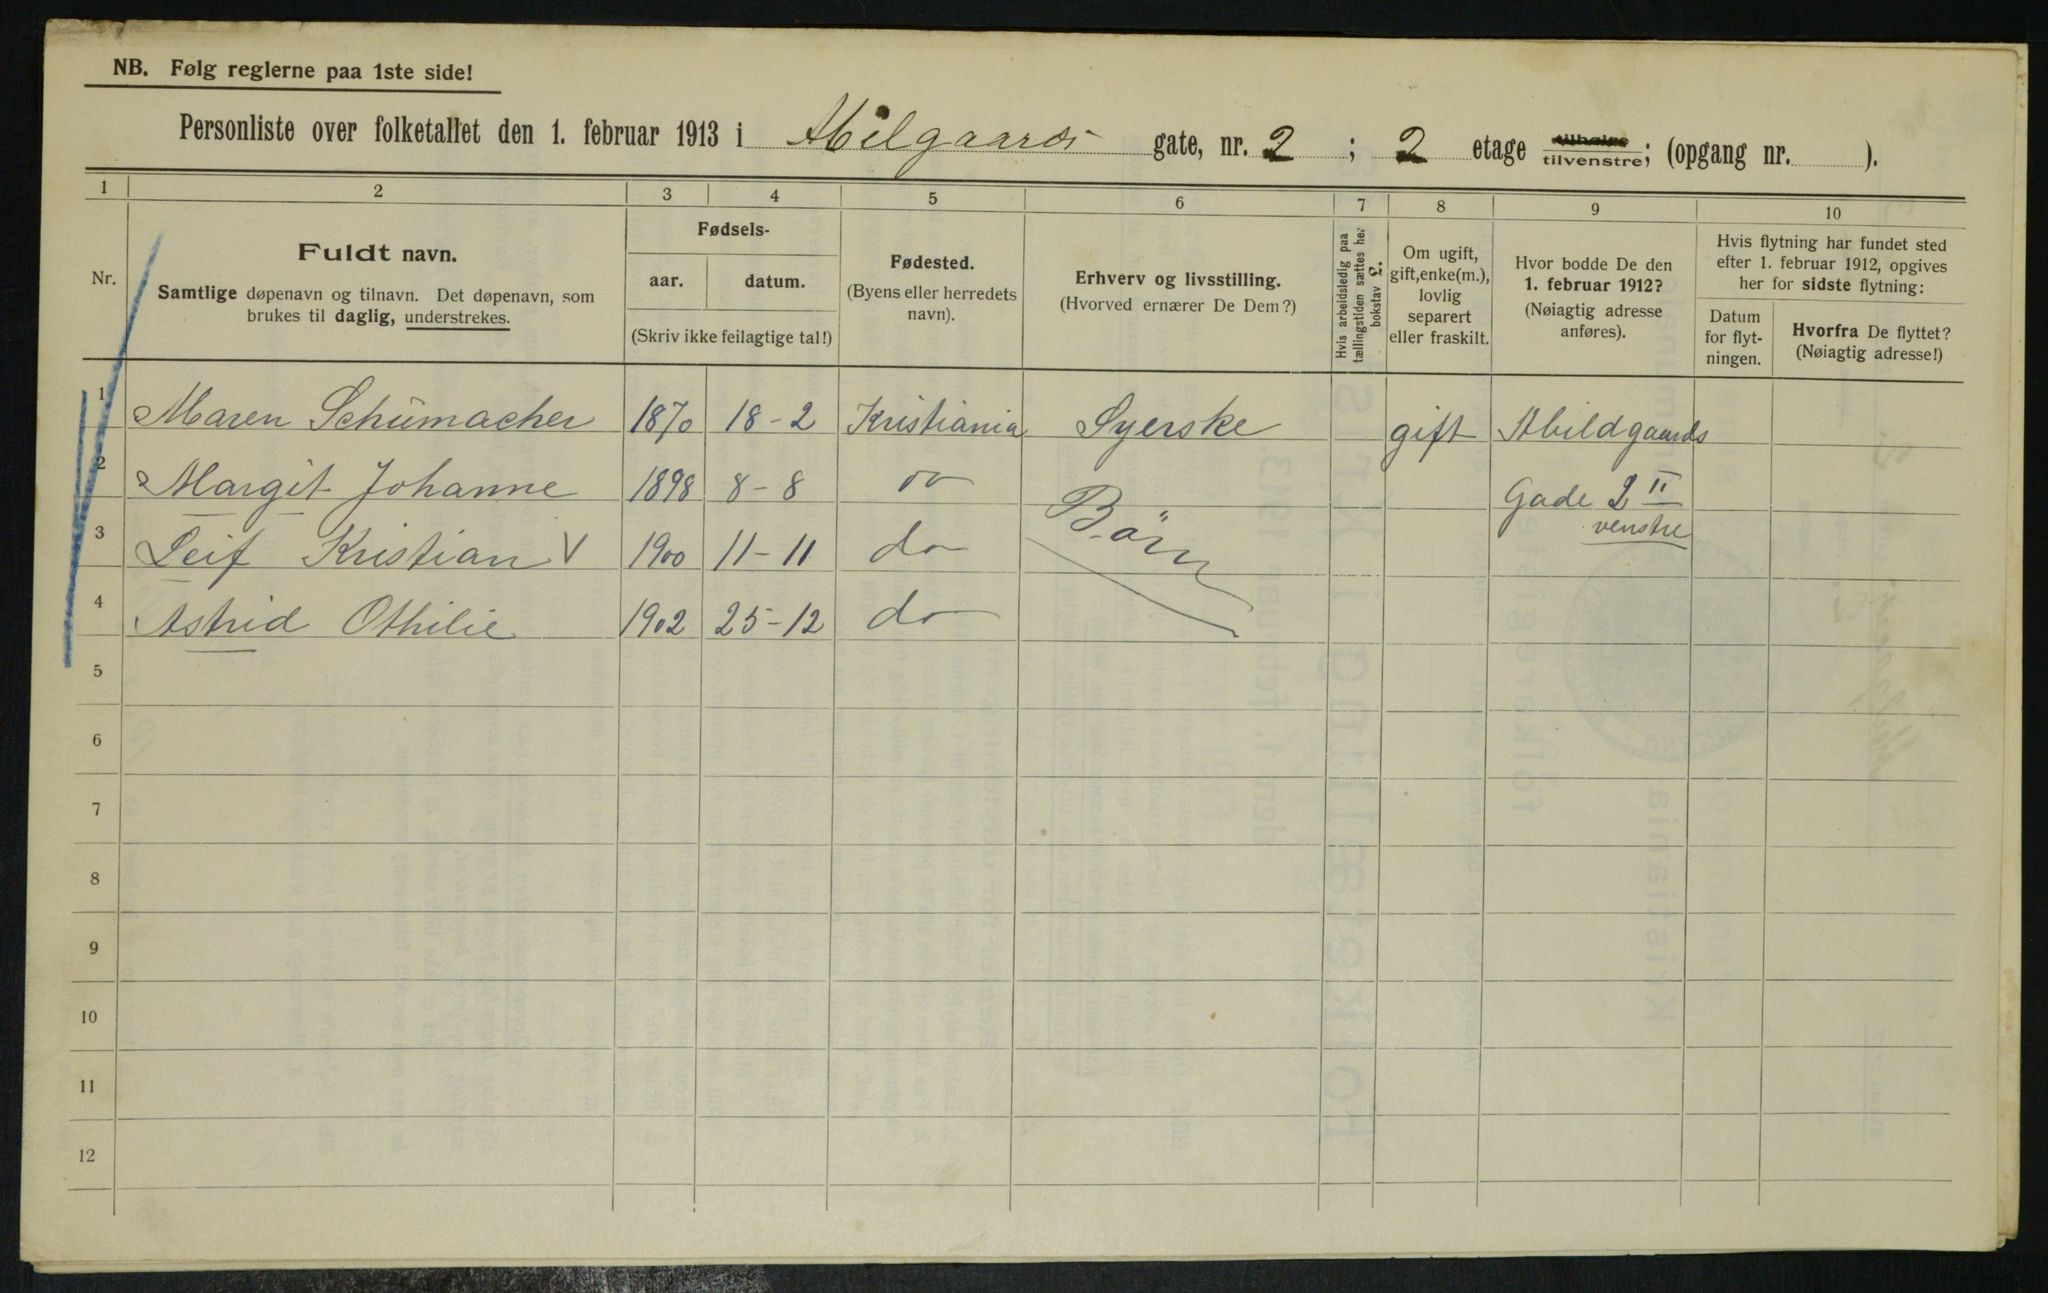 NB. Følg reglerne paa 1ste side!
Personliste over folketallet den 1. februar 1913 i Abelgaards gate, nr. 2 ; 2 etage tilhøire tilvenstre; (opgang nr. ).
1 2 3 4 5 6 7 8 9 10
Nr.
Fuldt navn.
Samtlige døpenavn og tilnavn. Det døpenavn, som
brukes til daglig, understrekes.
Fødsels-
aar. datum.
(Skriv ikke feilagtige tal!)
Fødested.
(Byens eller herredets
navn).
Erhverv og livsstilling.
(Hvorved ernærer De Dem?)
Hvis arbeidsledig paa
tællingstiden sættes her
bokstav L.
Om ugift,
gift, enke(m.),
lovlig
separert
eller fraskilt.
Hvor bodde De den
1. februar 1912?
(Nøiagtig adresse
anføres).
Hvis flytning har fundet sted
efter 1. februar 1912, opgives
her for sidste flytning:
Datum
for flyt-
ningen.
Hvorfra De flyttet?
(Nøiagtig adresse!)
1 Maren Schümacher 1870 18-2 Kristiania Syerske gift Abildgaards
2 Margit Johanne 1898 8-8 do Börn Gade 2 II
venstre
3 Leif Kristian V 1900 11-11 do
4 Astrid Othilie 1902 25-12 do
5
6
7
8
9
10
11
12